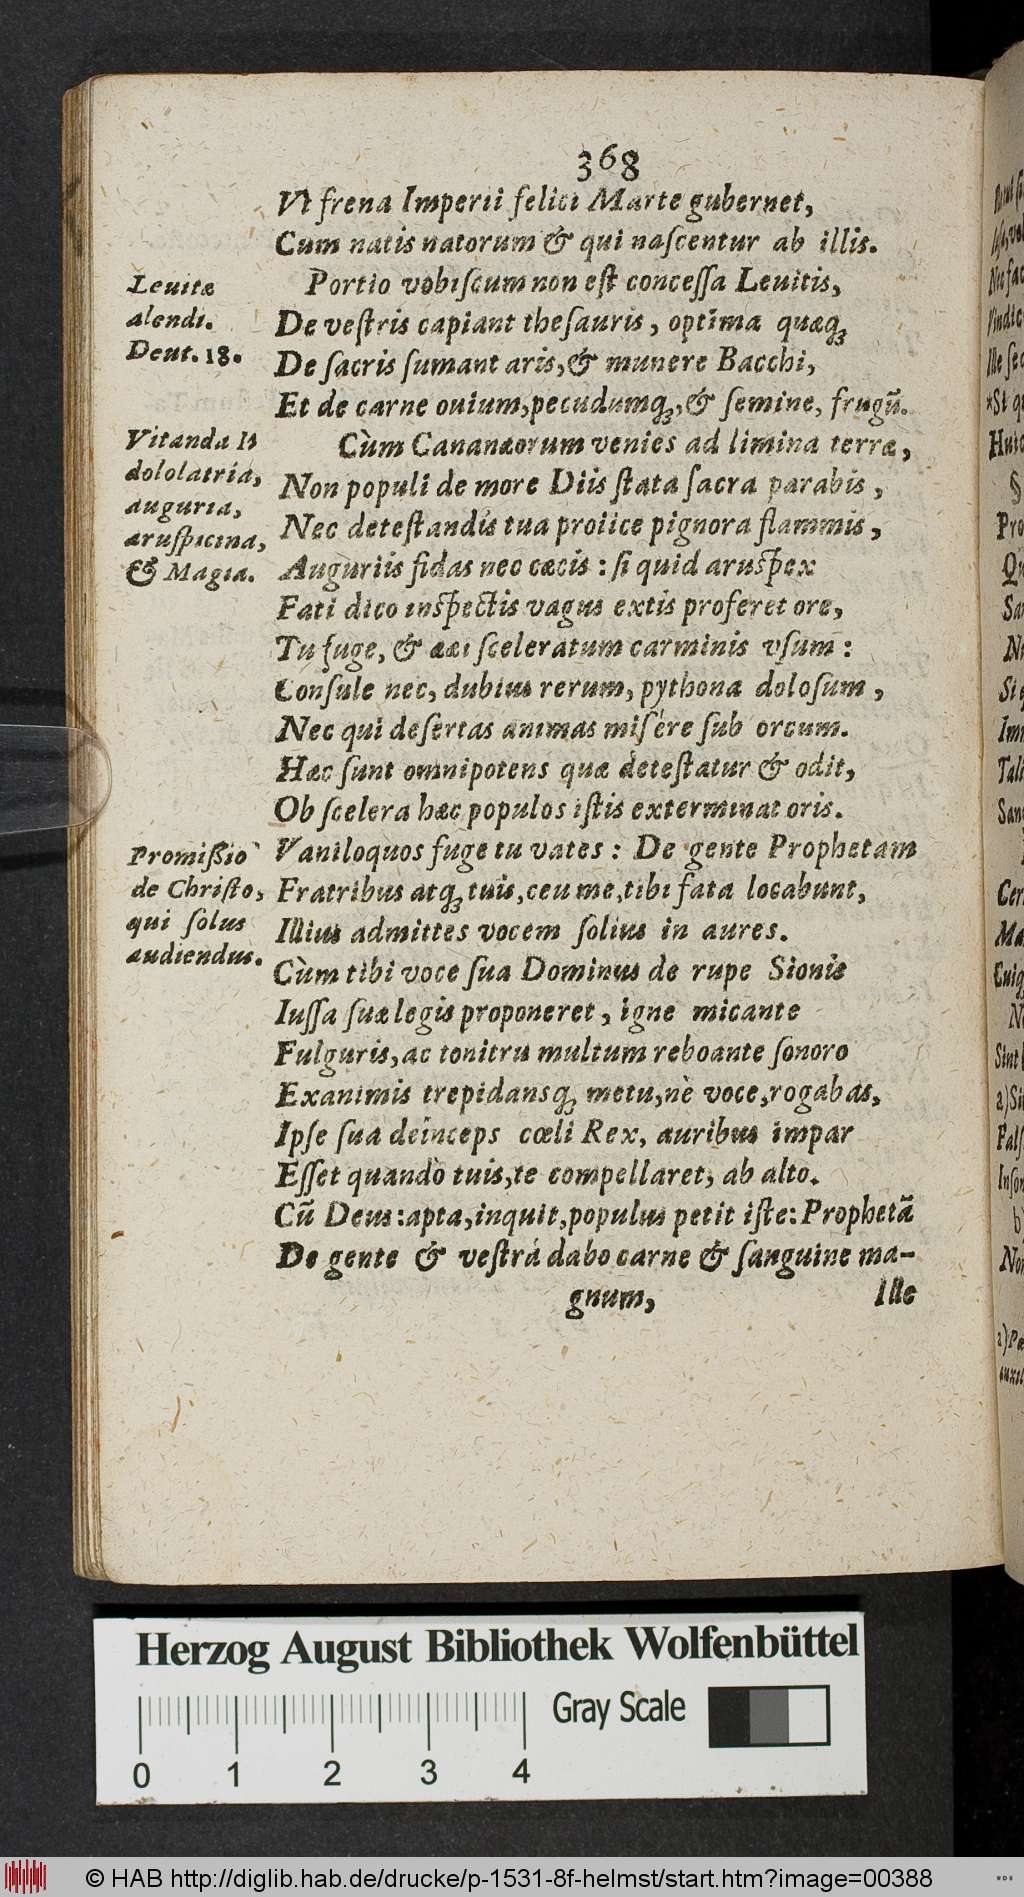 368
Vt frena Imperii felici Marte gubernet,
Cum natis natorum & qui naſcentur ab illis.
Leuitæ
alendi.
Deut. 18.
Portio vobiſcum non eſt conceſſa Leuitis,
De veſtris capiant theſauris, optima quæq;
De ſacris ſumant aris, & munere Bacchi,
Et de carne ouium, pecudumq;, & ſemine, frugũ.
Vitanda I-
dololatria,
auguria,
aruſpicina,
& Magia.
Cùm Cananæorum venies ad limina terræ,
Non populi de more Diis ſtata ſacra parabis,
Nec deteſtandis tua proiice pignora flammis,
Auguriis fidas nec cæcis: ſi quid aruſpex
Fati dico inſpectis vagus extis proferet ore,
Tu fuge, & ſceleratum carminis vſum:
Conſule nec, dubius rerum, pythona doloſum,
Nec qui deſertas animas miſére ſub orcum.
Hæc ſunt omnipotens quæ deteſtatur & odit,
Ob ſcelera hæc populos iſtis exterminat oris.
Promiſſio
de Chriſto,
qui ſolus
audiendus.
Vaniloquos fuge tu vates: De gente Prophetam
Fratribus atq; tuis, ceu me, tibi fata locabunt,
Illius admittes vocem ſolius in aures.
Cùm tibi voce ſua Dominus de rupe Sionis
Iuſſa ſuæ legis proponeret, igne micante
Fulguris, ac tonitru multum reboante ſonoro
Exanimis trepidansq; metu, nè voce, rogabas,
Ipſe ſua deinceps cœli Rex, auribus impar
Eſſet quandò tuis, te compellaret, ab alto.
Cũ Deus: apta, inquit, populus petit iſte: Prophetã
De gente & veſtrá dabo carne & ſanguine ma-
gnum,
Ille
Herzog August Bibliothek Wolfenbüttel
Gray Scale
0 1 2 3 4
© HAB http://diglib.hab.de/drucke/p-1531-8f-helmst/start.htm?image=00388